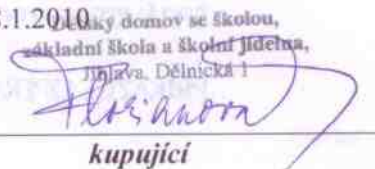 .1.2010
Dětský domov se školou,
základní škola a školní jídelna,
Jihlava, Dělnická 1
Florianová
kupující